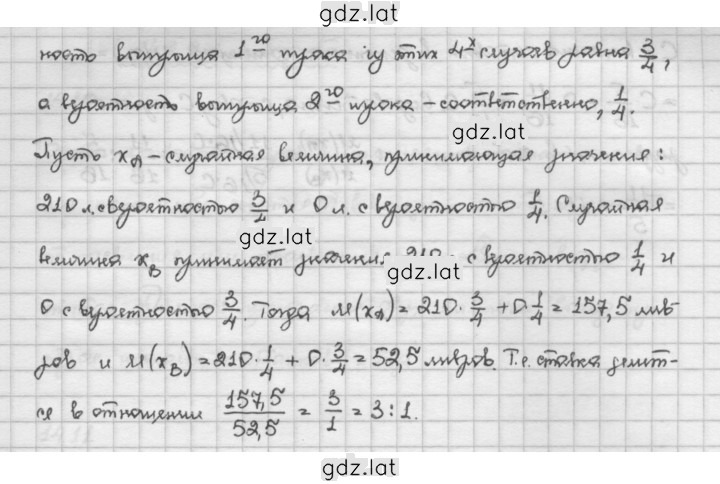 gdz.lat
ность выигрыша 1го игрока из этих 4х случаев равна 3/4,
а вероятность выигрыша 2го игрока – соответственно, 1/4.
gdz.lat
Пусть x_A – случайная величина, принимающая значения:
210 л. с вероятностью 3/4 и 0 л. с вероятностью 1/4. Случайная
gdz.lat
величина x_B принимает значения 210 с вероятностью 1/4 и
gdz.lat
0 с вероятностью 3/4. Тогда M(x_A) = 210·3/4 + 0·1/4 = 157,5 лив-
ров и M(x_B) = 210·1/4 + 0·3/4 = 52,5 ливров. Т.е. ставка делит-
ся в отношении 157,5/52,5 = 3/1 = 3:1.
gdz.lat